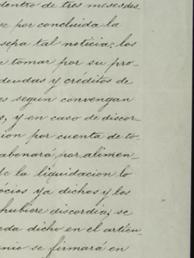 dentro de tres meses des
e por concluida la
sepa tal noticia; los
a tomar por su pro
deudas y créditos de
es segun convengan
s, y en caso de discor
ion por cuenta de to
abonará por alimen
de la liquidacion lo
ócios ya dichos y los
hubiere discordia; se
eda dicho en el articu
nio se firmará en